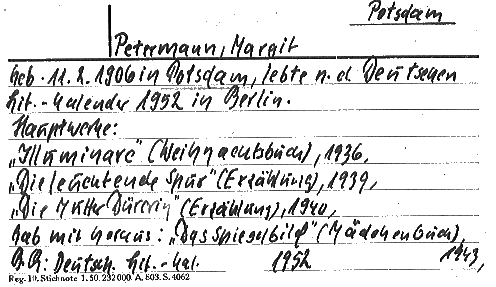 Potsdam
Petermann, Margit
geb. 11.2.1906 in Potsdam, lebte n. d. Deutschen
Lit.-Kalender 1952 in Berlin.
Hauptwerke:
„Illuminare" (Weihnachtsbuch), 1936,
„Die leuchtende Spur" (Erzählung), 1939,
„Die Mutter Dürerin" (Erzählung), 1940,
gab mit heraus: „Das Spiegelbild" (Mädchenbuch),
1943,
Deutsch. Lit.-Kal. 1952
Reg. 19. Stichnote 1. 50. 232000. A. 803. S. 4062